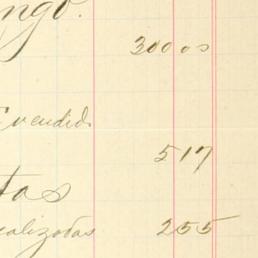 ngo.
300 05
vendido
517
tas
ealizotas 255